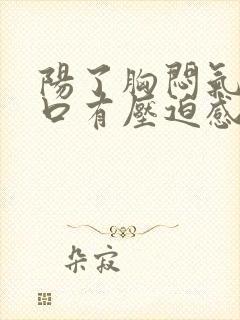 陽了胸悶氣
口有壓迫感
朵寂